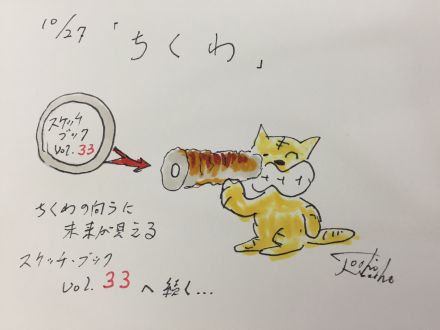 10/27
「ちくわ」
スケッチ
ブック
vol.33
ちくわの向うに
未来が見える
スケッチ・ブック
vol.33へ続く...